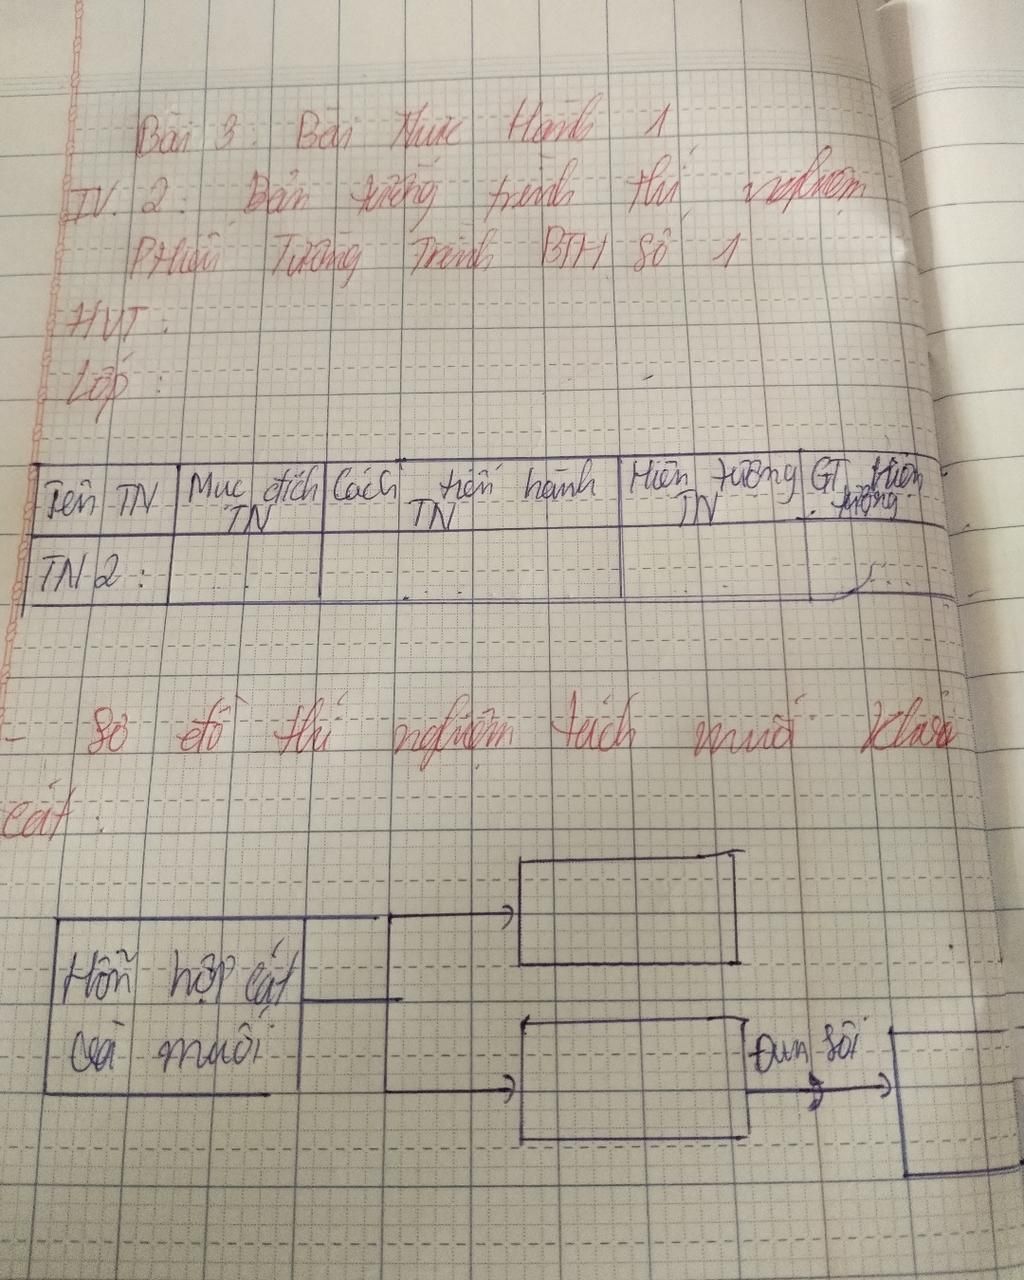 Bài 3: Bài Thực Hành 1
IV. 2: Bản tường trình thí nghiệm
Phiếu Tường Trình BTH Số 1
HVT:
Lớp:
Tên TN Mục đích TN Cách tiến hành TN Hiện tượng TN GT Hiện tượng
TN 2:
- Sơ đồ thí nghiệm tách muối khỏi
cát:
Hỗn hợp cát
và muối
Đun sôi